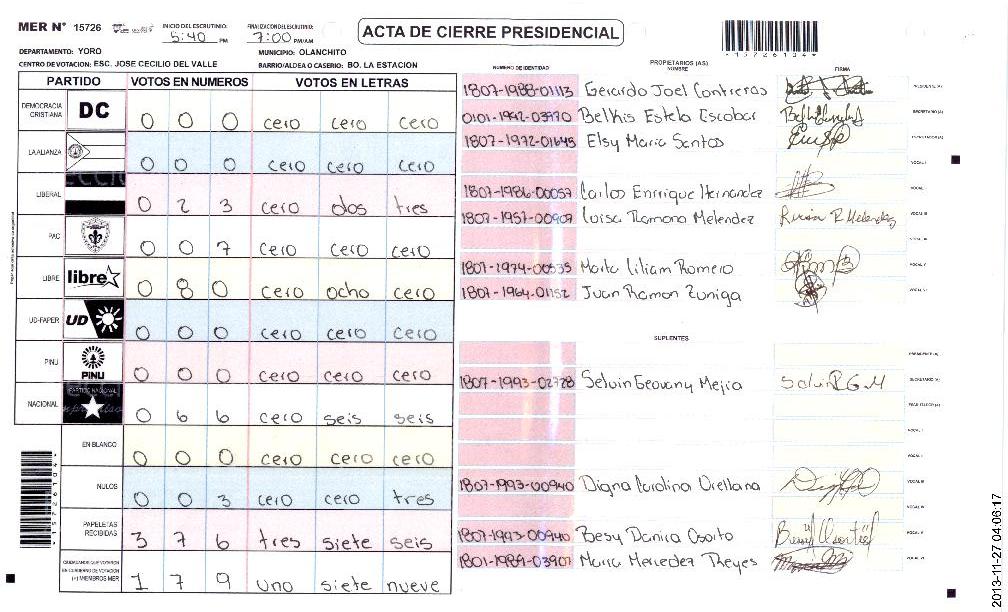 MER N° 15726 INICIO DEL ESCRUTINIO: 5:40 PM FINALIZACION DEL ESCRUTINIO: 7:00 PM/AM ACTA DE CIERRE PRESIDENCIAL
DEPARTAMENTO: YORO MUNICIPIO: OLANCHITO
CENTRO DE VOTACION: ESC. JOSE CECILIO DEL VALLE BARRIO/ALDEA O CASERIO: BO. LA ESTACION
PARTIDO VOTOS EN NUMEROS VOTOS EN LETRAS
DEMOCRACIA CRISTIANA DC 0 0 0 cero cero cero
LA ALIANZA 0 0 0 cero cero cero
LIBERAL 0 2 3 cero dos tres
PAC 0 0 7 cero cero cero
LIBRE libre 0 8 0 cero ocho cero
UD-FAPER UD 0 0 0 cero cero cero
PINU PINU 0 0 0 cero cero cero
NACIONAL PARTIDO NACIONAL 0 6 6 cero seis seis
EN BLANCO 0 0 0 cero cero cero
NULOS 0 0 3 cero cero tres
PAPELETAS RECIBIDAS 3 7 6 tres siete seis
CIUDADANOS QUE VOTARON EN CUADERNO DE VOTACION (+) MIEMBROS MER 1 7 9 uno siete nueve
NUMERO DE IDENTIDAD PROPIETARIOS (AS) NOMBRE FIRMA
1807-1988-01113 Gerardo Joel Contreras PRESIDENTE (A)
0101-1942-03970 Belkis Estela Escobar SECRETARIO (A)
1807-1972-01645 Elsy Maria Santos ESCRUTADOR (A)
VOCAL I
1807-1986-00057 Carlos Enrrique Hernandez VOCAL
1807-1957-00909 Luisa Ramona Melendez VOCAL III
1807-1974-00535 Marta Liliam Romero VOCAL V
1807-1964-01152 Juan Ramon Zuniga VOCAL VI
SUPLENTES
PRESIDENTE (A)
1807-1993-02728 Selvin Geovany Mejia Selvin R G M SECRETARIO (A)
ESCRUTADOR (A)
VOCAL I
1807-1993-00940 Digna Carolina Orellana VOCAL III
VOCAL IV
1807-1993-00940 Besy Danira Osorto VOCAL V
1801-1989-03907 Maria Mercedez Reyes VOCAL VI
1 5 7 2 6 1 0 4
2013-11-27 04:06:17